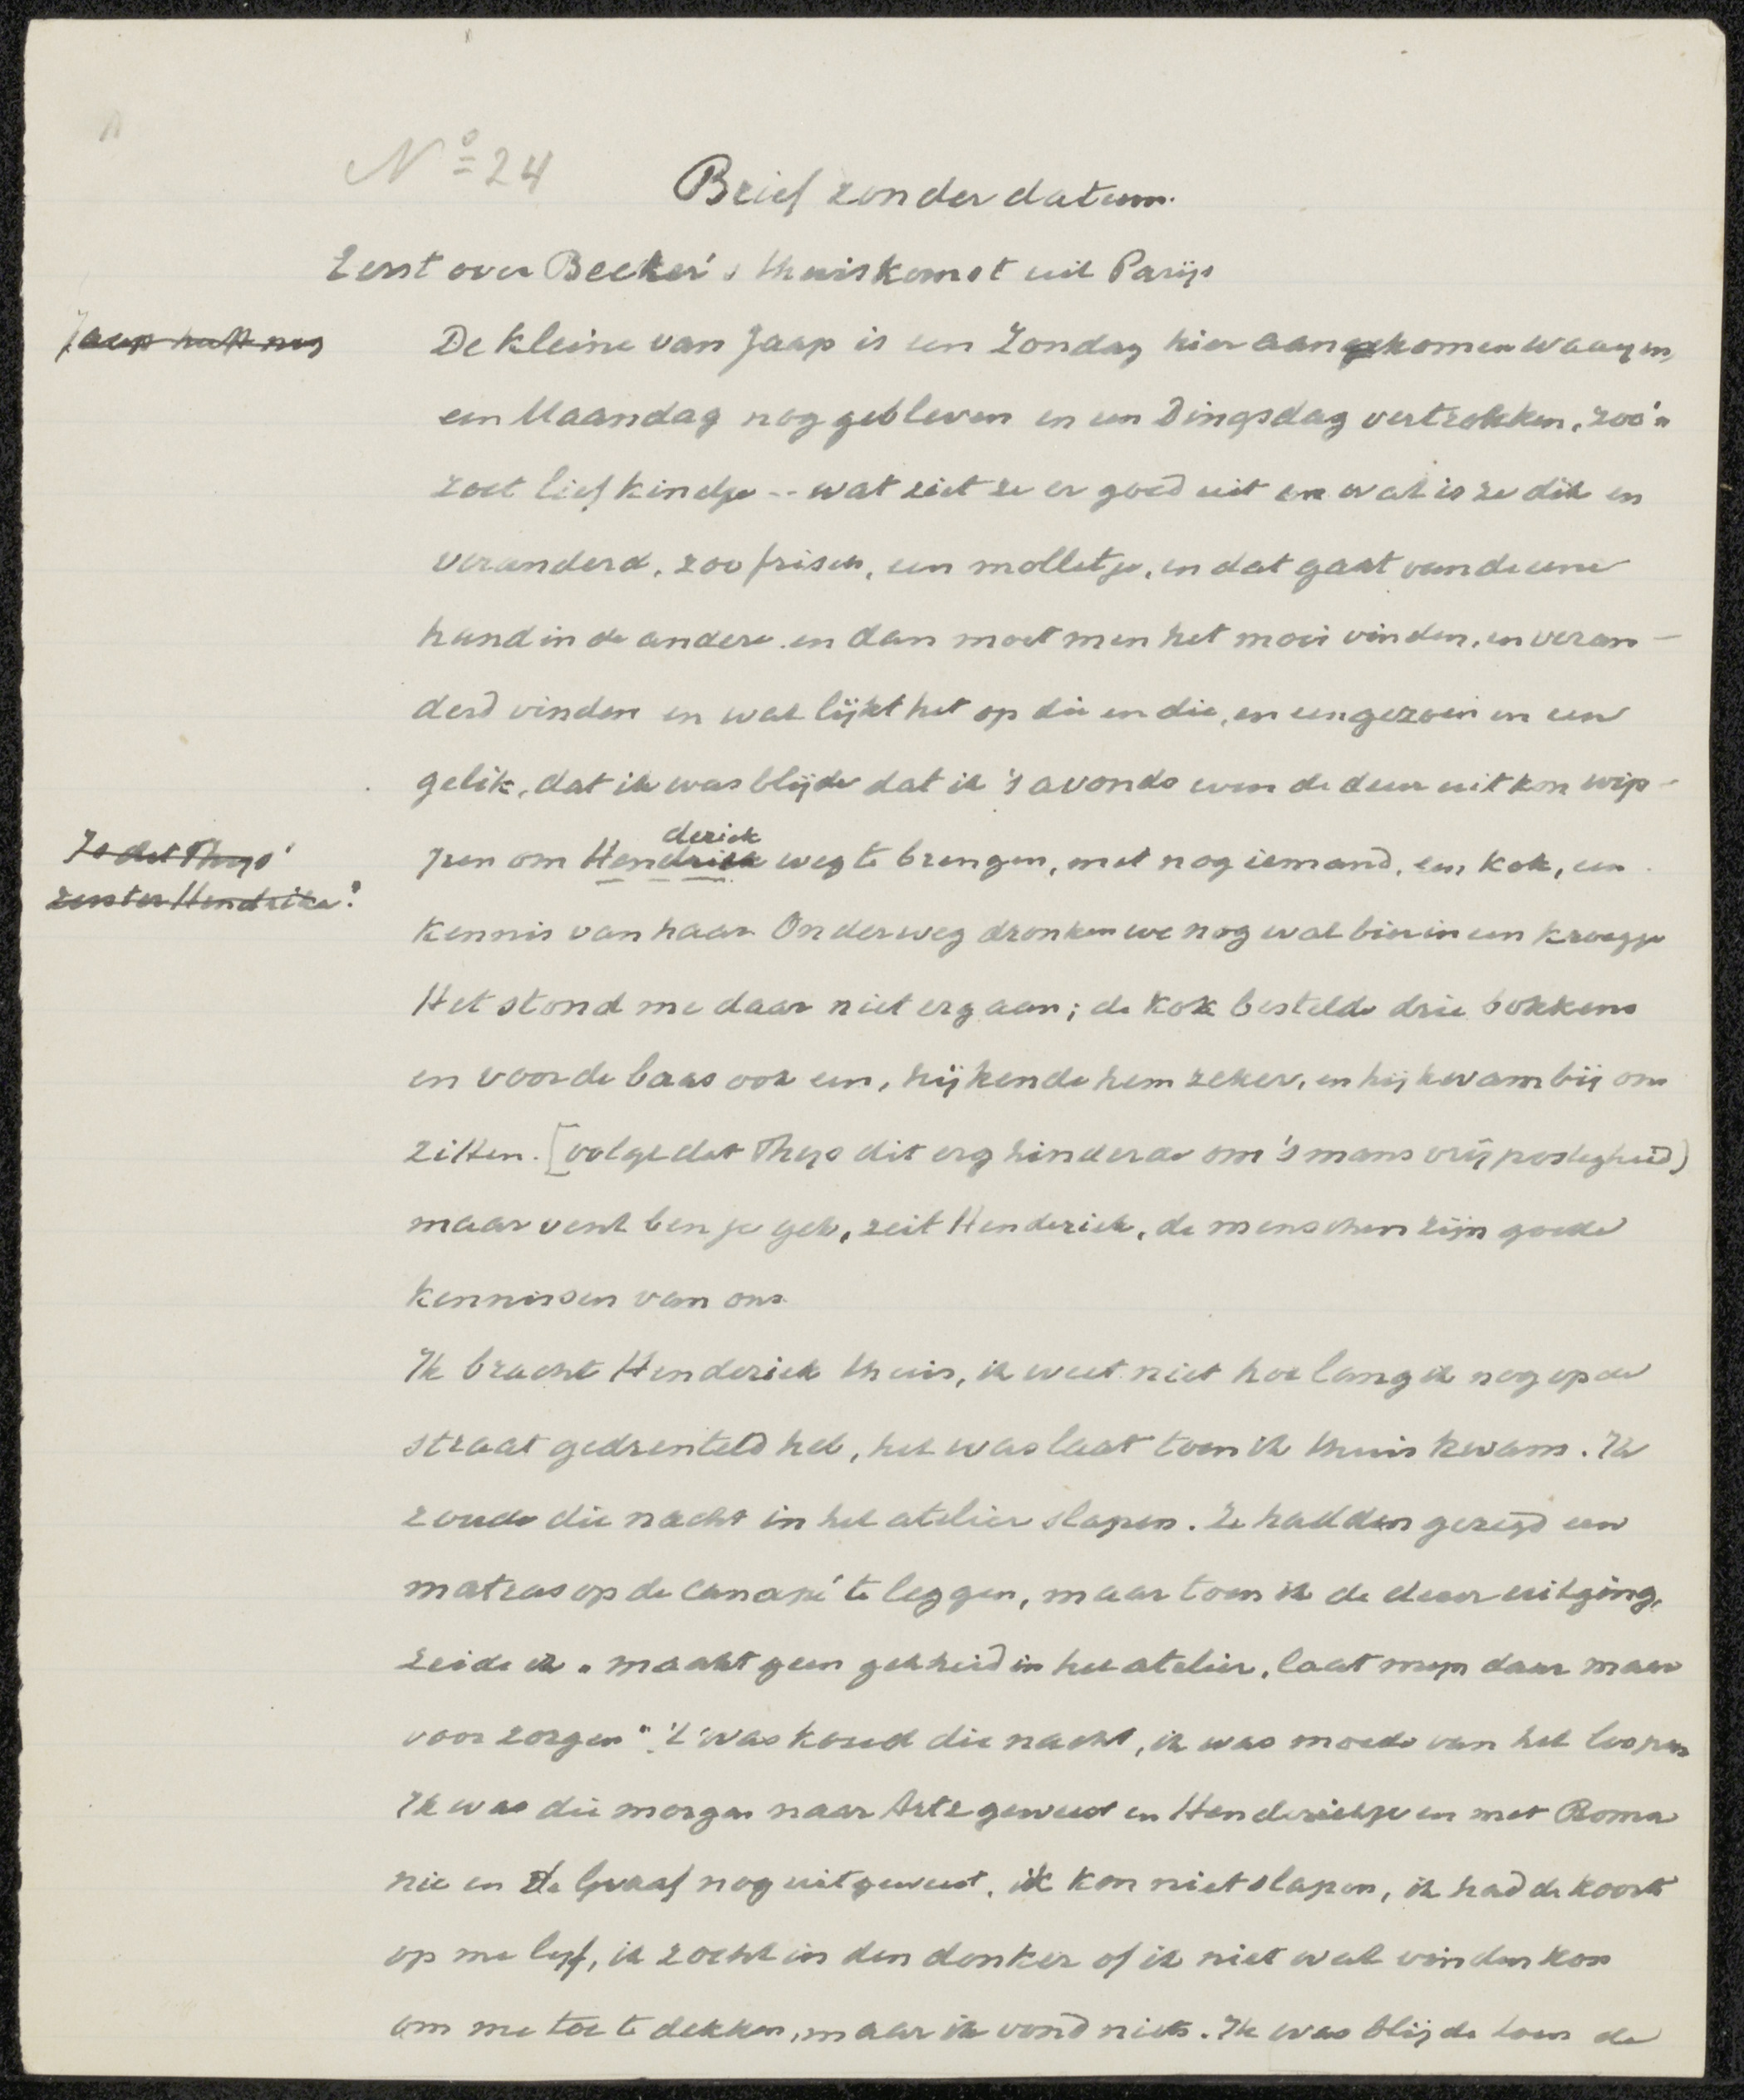 No = 24
Brief zonder datum.
Eerst over Becker's thuiskomst uit Parijs
Jaap heeft nog
De kleine van Jaap is een Zondag hier aangekomen waayen,
een Maandag nog gebleven en een Dingsdag vertrokken, zoo'n
zoet lief kindje -- wat ziet ze er goed uit en wat is ze dik en
veranderd, zoo frisch, een molletje, en dat gaat van de eene
hand in de andere en dan moet men het mooi vinden, en veran-
derd vinden en wat lijkt het op die en die, en een gezoen en een
gelik, dat ik was blijde dat ik 's avonds even de deur uit kon wip-
Is dat Thijs'
zuster Hendrika?
derick
pen om Hendrick weg te brengen, met nog iemand, een kok, een
kennis van haar. Onderweg dronken we nog wat bier in een kroegje
Het stond me daar niet erg aan; de kok bestelde drie bokkens
en voor de baas ook een, hij kende hem zeker, en hij kwam bij ons
zitten. [volgt dat Thijs dit erg hinderde om 's mans vrijpostigheid)
maar vent ben je gek, zeit Henderick, de menschen zijn goede
kennissen van ons.
Ik bracht Henderick thuis, ik weet niet hoe lang ik nog op de
straat gedrenteld heb, het was laat toen ik thuis kwam. Ik
zoude die nacht in het atelier slapen. Ze hadden gezegd een
matras op de canapé te leggen, maar toen ik de deur uitging,
zeide ik "maakt geen gekheid in het atelier, laat mijn daar maar
voor zorgen". 't Was koud die nacht, ik was moede van het loopen
Ik was die morgen naar Artz geweest en Henderickje en met Roma
nie en de Graaf nog uitgeweest, ik kon niet slapen, ik had de koorts
op me lijf, ik zocht in den donker of ik niet wat vinden kon
om me toe te dekken, maar ik vond niets. Ik was blijde toen de